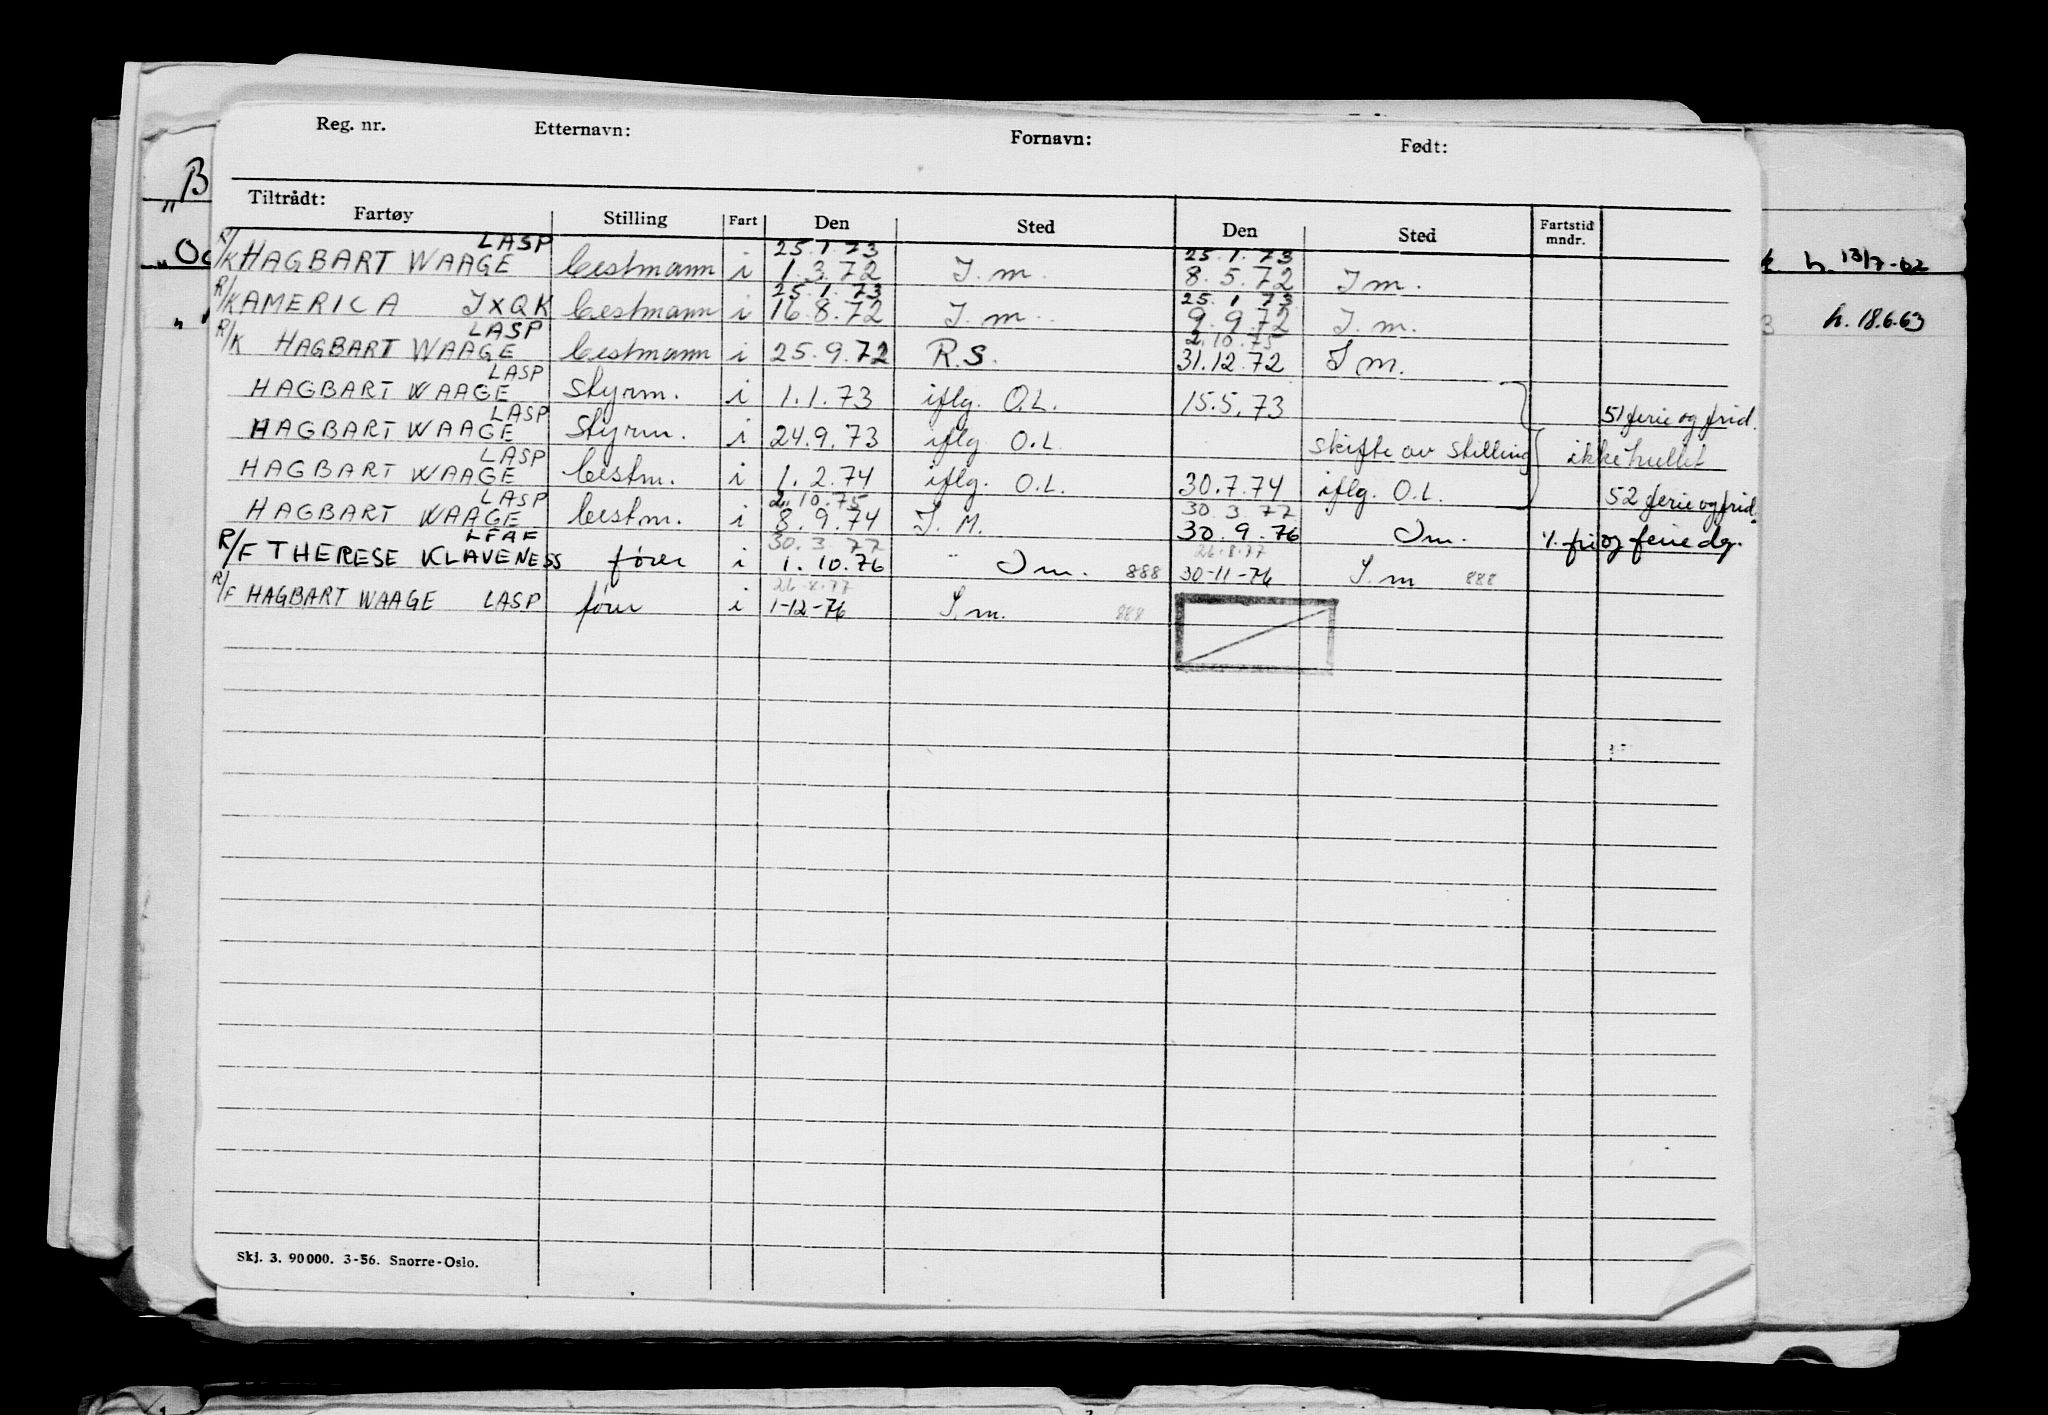 Reg. nr. Etternavn: Fornavn: Født:
Tiltrådt:
Fartøy Stilling Fart Den Sted Den Sted Fartstid mndr.
LASP 25.1.73 25.1.73
R/K HAGBART WAAGE Bestmann i 1.3.72 I.m. 8.5.72 I m.
25.1.73 25.1.73
R/K AMERICA JXQK Bestmann i 16.8.72 I.m. 9.9.72 I.m.
LASP 2.10.75
R/K HAGBART WAAGE Bestmann i 25.9.72 R.S. 31.12.72 I m.
LASP
HAGBART WAAGE Styrm. i 1.1.73 iflg. O.L. 15.5.73 51 ferie og frid.
LASP
HAGBART WAAGE Styrm. i 24.9.73 iflg O.L. skifte av stilling ikke hullet
LASP
HAGBART WAAGE Bestm. i 1.2.74 iflg. O.L. 30.7.74 iflg. O.L. 52 ferie og frid.
LASP 2.10.75 30.3.77
HAGBART WAAGE Bestm. i 8.9.74 I.M. 30.9.76 Im. %. fri og ferie dg.
LFAF 30.3.77 26.8.77
R/F THERESE KLAVENESS fører i 1.10.76 Im. 888 30-11-76 I.m 888
26.8.77
R/F HAGBART WAAGE LASP fører i 1-12-76 I.m. 888
Skj. 3. 90000. 3-56. Snorre-Oslo.
B
"
"
h. 13/7-62
h. 18.6.63